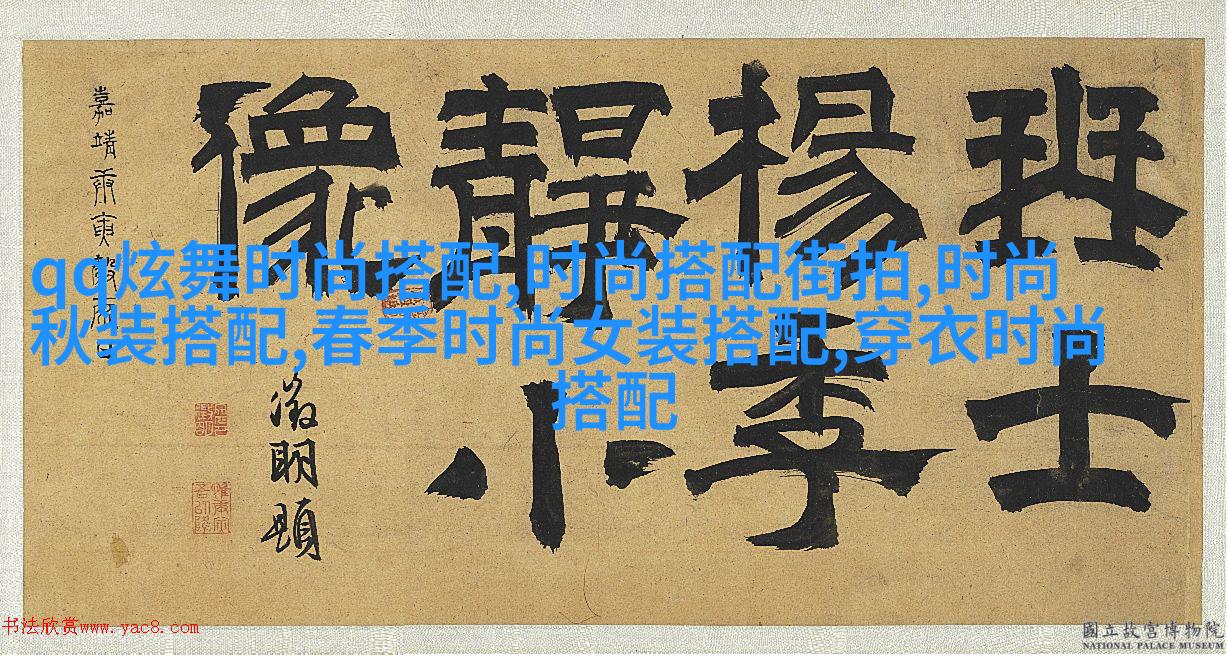 班士
楊季
靜小
像
嘉靖庚寅
徵明題
qq炫舞时尚搭配,时尚搭配街拍,时尚
秋装搭配,春季时尚女装搭配,穿衣时尚
搭配
书法欣赏www.yac8.com
國立故宮博物院
NATIONAL PALACE MUSEUM